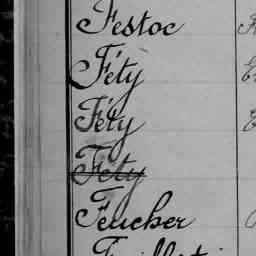 Festoc
Féty
Féty
Féty
Feucher